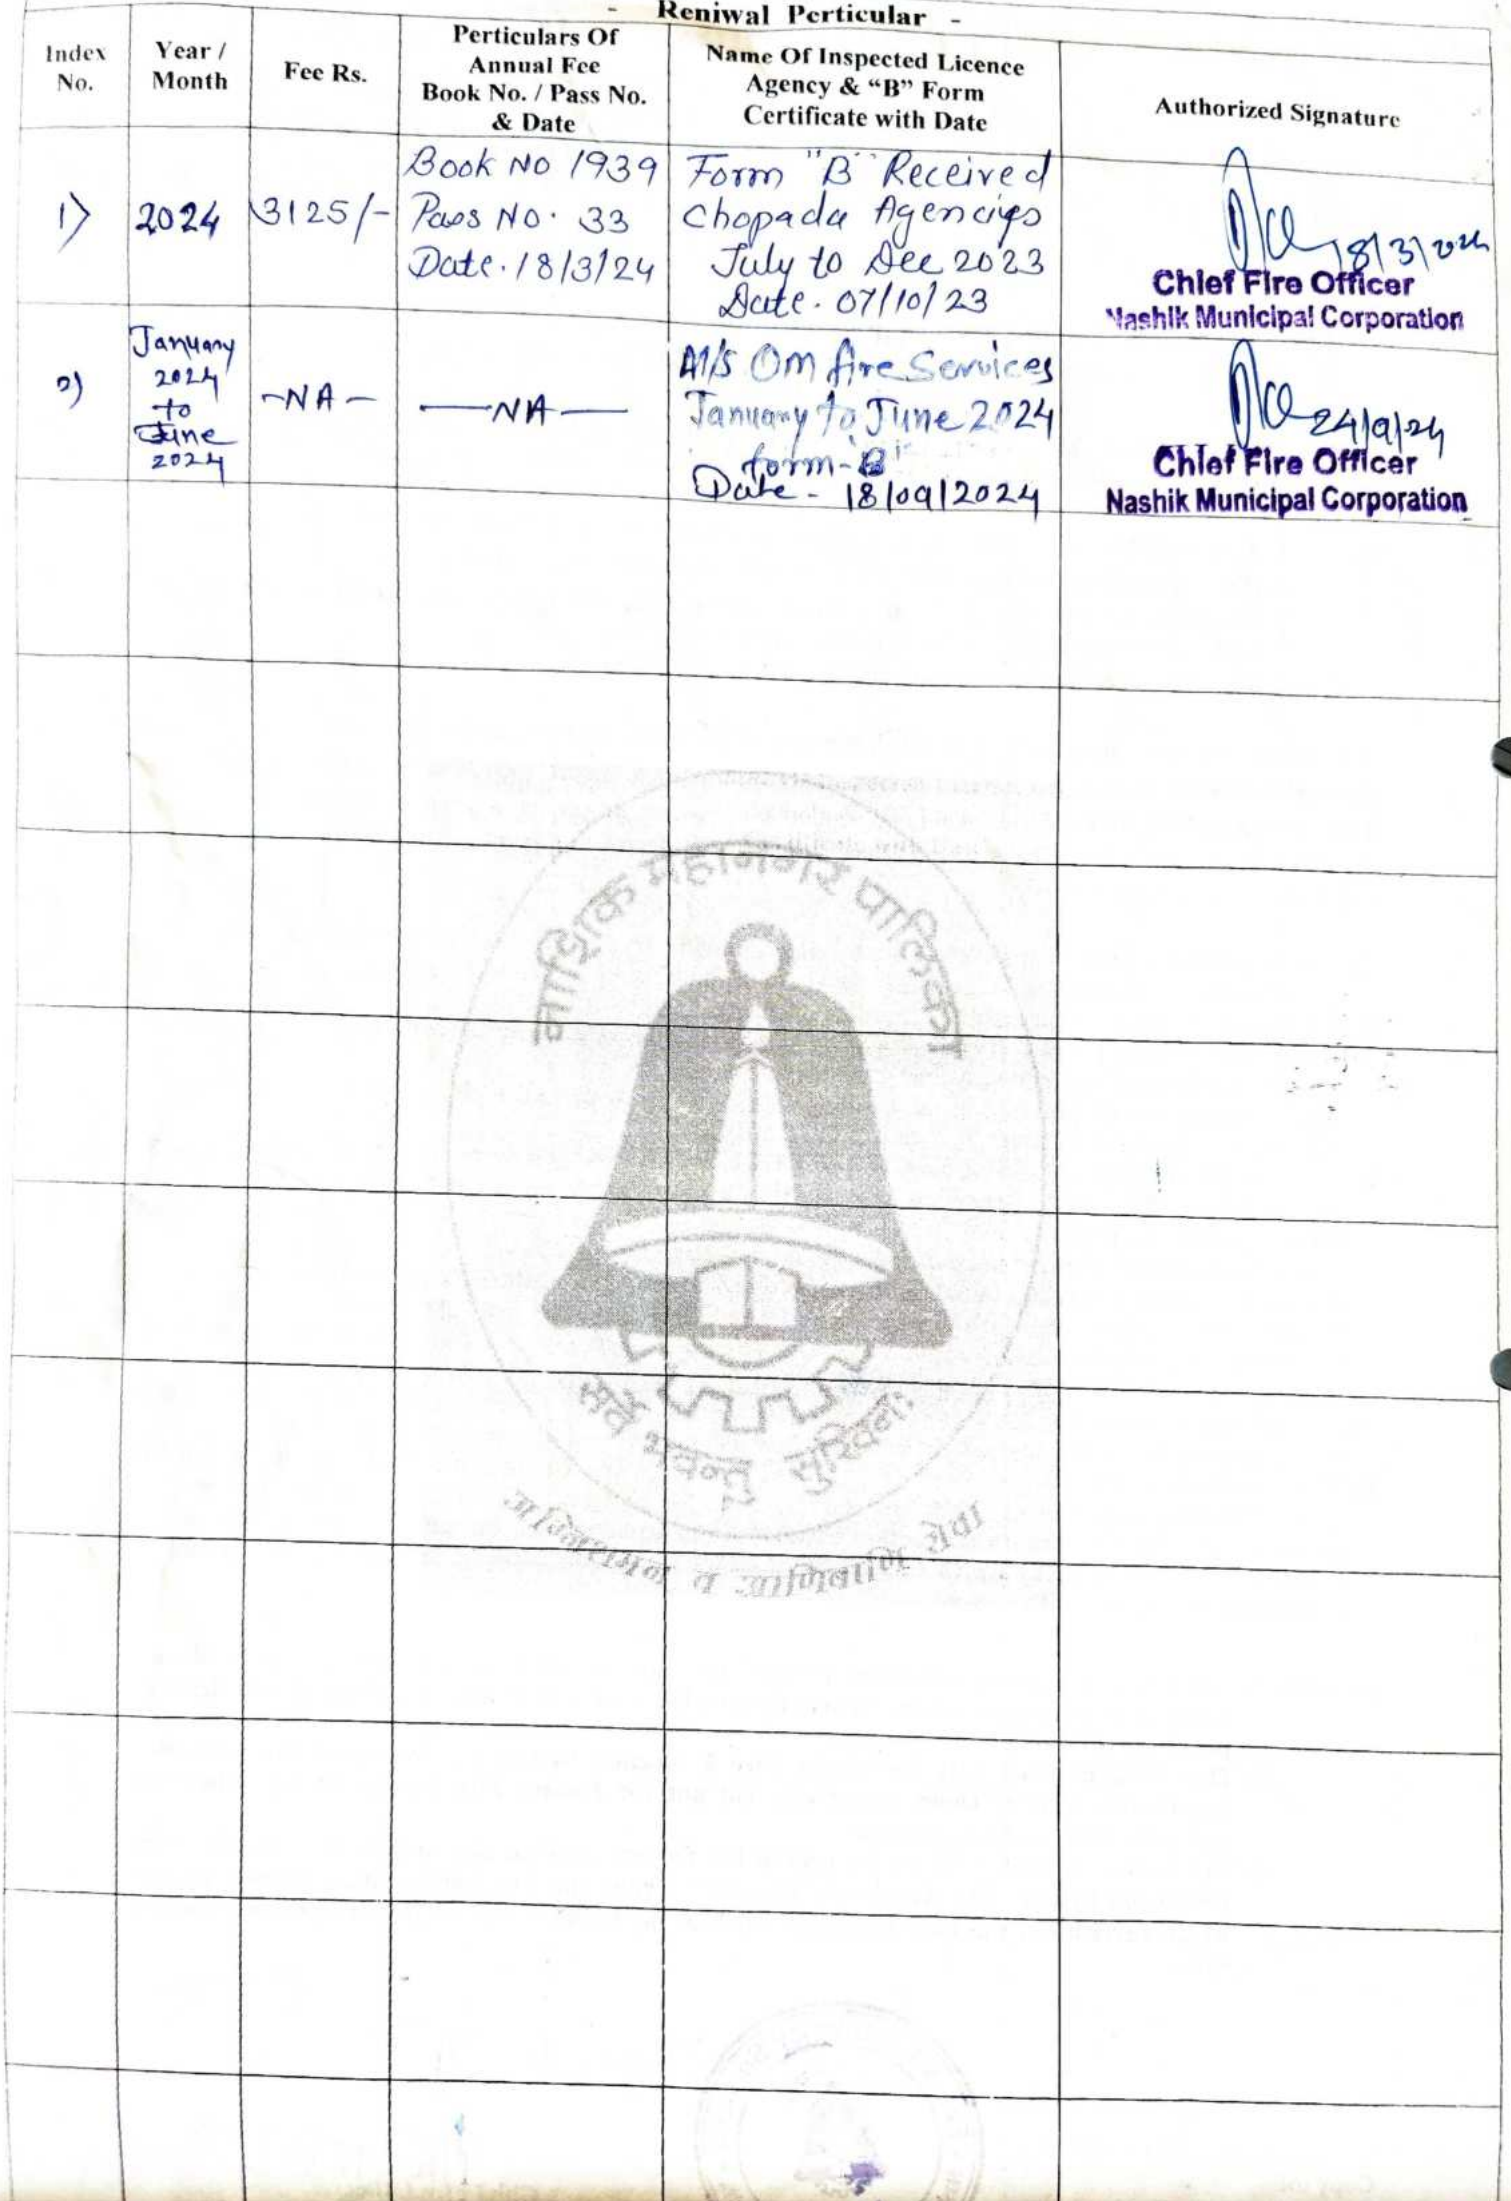 - Reniwal Perticular -
Index No.
Year / Month
Fee Rs.
Perticulars Of Annual Fee Book No. / Pass No. & Date
Name Of Inspected Licence Agency & “B” Form Certificate with Date
Authorized Signature
1)
2024
3125/-
Book No 1939
Pass No. 33
Date. 18/3/24
Form "B" Received
Chopada Agencies
July to Dec 2023
Date. 07/10/23
18/3/2024
Chief Fire Officer
Nashik Municipal Corporation
2)
January
2024
to
June
2024
-NA-
-NA-
M/s Om fire Services
January to June 2024
form-"B"
Date - 18/09/2024
24/9/24
Chief Fire Officer
Nashik Municipal Corporation
नाशिक महानगर पालिका
सर्वे भवन्तु सुखिनः
अग्निशमन व आणिबाणि सेवा